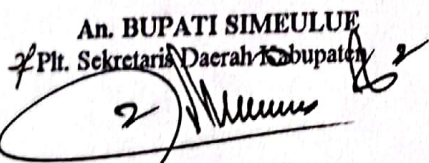 An. BUPATI SIMEULUE
Plt. Sekretaris Daerah Kabupaten